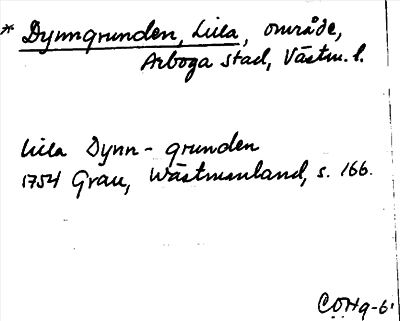 * Dynngrunden, Lilla, område,
Arboga stad, Västm. l.
Lilla Dynn-grunden
1754 Grau, Wästmanland, s. 166.